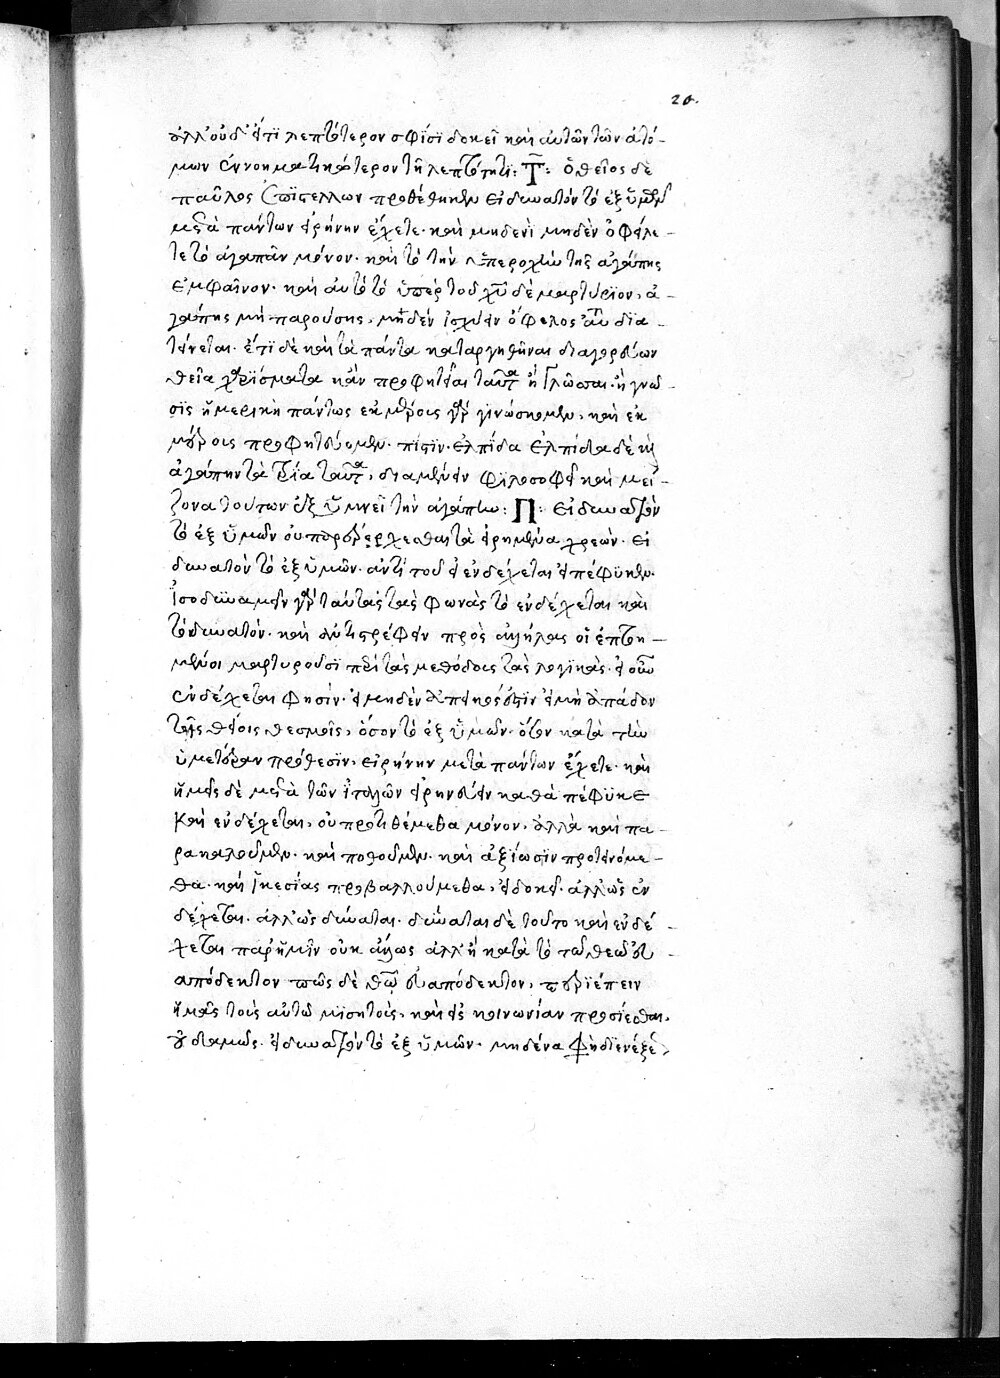 20.
ἀλλ' οὐδ' ἔτι λεπτότερον σφίσι δοκεῖ καὶ αὐτῶν τῶν ἀτό-
μων ἐννοηματικώτερον τῇ λεπτότητι: Τ: ὁ θεῖος δὲ
παῦλος ἐπιστέλλων προτέθηκεν εἰ δυνατὸν τὸ ἐξ ὑμῶν
μετὰ πάντων εἰρήνην ἔχετε· καὶ μηδενὶ μηδὲν ὀφείλε-
τε τὸ ἀγαπᾶν μόνον· καὶ τὸ τὴν ὑπεροχὴν τῆς ἀγάπης
ἐμφαῖνον· καὶ αὐτὸ τὸ ὑπὲρ τοῦ χῦ δὲ μαρτύριον, ἀ-
γάπης μὴ παρούσης, μηδὲν ἰσχύειν ὄφελος ἂν δια-
τείνεται. ἔτι δὲ καὶ τὰ πάντα καταργηθῆναι διαγορεύων
θεῖα χαρίσματα κἂν προφητεῖαι ταῦτα ἢ γλῶσσαι· ἢ γνῶ-
σις ἡ μερικὴ πάντως ἐκ μέρους γὰρ γινώσκομεν, καὶ ἐκ
μέρους προφητεύομεν. πίστιν· ἐλπίδα δὲ καὶ
ἀγάπην τὰ τρία ταῦτα, διαμένειν φιλοσοφεῖ καὶ μεί-
ζονα τούτων ἐξυμνεῖ τὴν ἀγάπην: Π: εἰ δυνατὸν
τὸ ἐξ ὑμῶν οὐ παρέρχεσθαι τὰ εἰρημένα χρεών· εἰ
δυνατὸν τὸ ἐξ ὑμῶν· ἀντὶ τοῦ εἰ ἐνδέχεται εἰ πέφυκεν.
ἰσοδυναμεῖν γὰρ ταύτας τὰς φωνὰς τὸ ἐνδέχεται καὶ
τὸ δυνατόν· καὶ ἀντιστρέφειν πρὸς ἀλλήλας οἱ ἐπτοη-
μένοι μαρτυροῦσι περὶ τὰς μεθόδους τὰς λογικάς· εἰ οὖν
ἐνδέχεται φησίν· εἰ μηδὲν εἰ μὴ ἀπᾶδον
τοῖς θείοις θεσμοῖς, ὅσον τὸ ἐξ ὑμῶν· κατὰ τὴν
ὑμετέραν πρόθεσιν, εἰρήνην μετὰ πάντων ἔχετε· καὶ
ἡμεῖς δὲ μετὰ τῶν ἰταλῶν εἰρηνεύειν καθὰ πέφυκε
καὶ ἐνδέχεται, οὐ προτιθέμεθα μόνον, ἀλλὰ καὶ πα-
ρακαλοῦμεν· καὶ ποθοῦμεν· καὶ ἀξίωσιν προτεινόμε-
θα· καὶ ἱκεσίας προβαλλούμεθα, εἰ δοκεῖ· ἀλλ' ὡς ἐν
δέχεται. ἀλλ' ὡς δύναται· δύναται δὲ τοῦτο καὶ ἐνδέ-
χεται παρ' ἡμῖν οὐκ ἄλλως ἀλλ' ἢ κατὰ τὸ τῷ θεῷ εὐ
απόδεκτον πῶς δὲ θῶ εὐαπόδεκτον,
ἡμᾶς τοὺς αὐτῷ μισητούς, καὶ εἰς κοινωνίαν προσίεσθαι.
οὐδαμῶς. εἰ δυνατὸν τὸ ἐξ ὑμῶν. μηδένα φησὶ